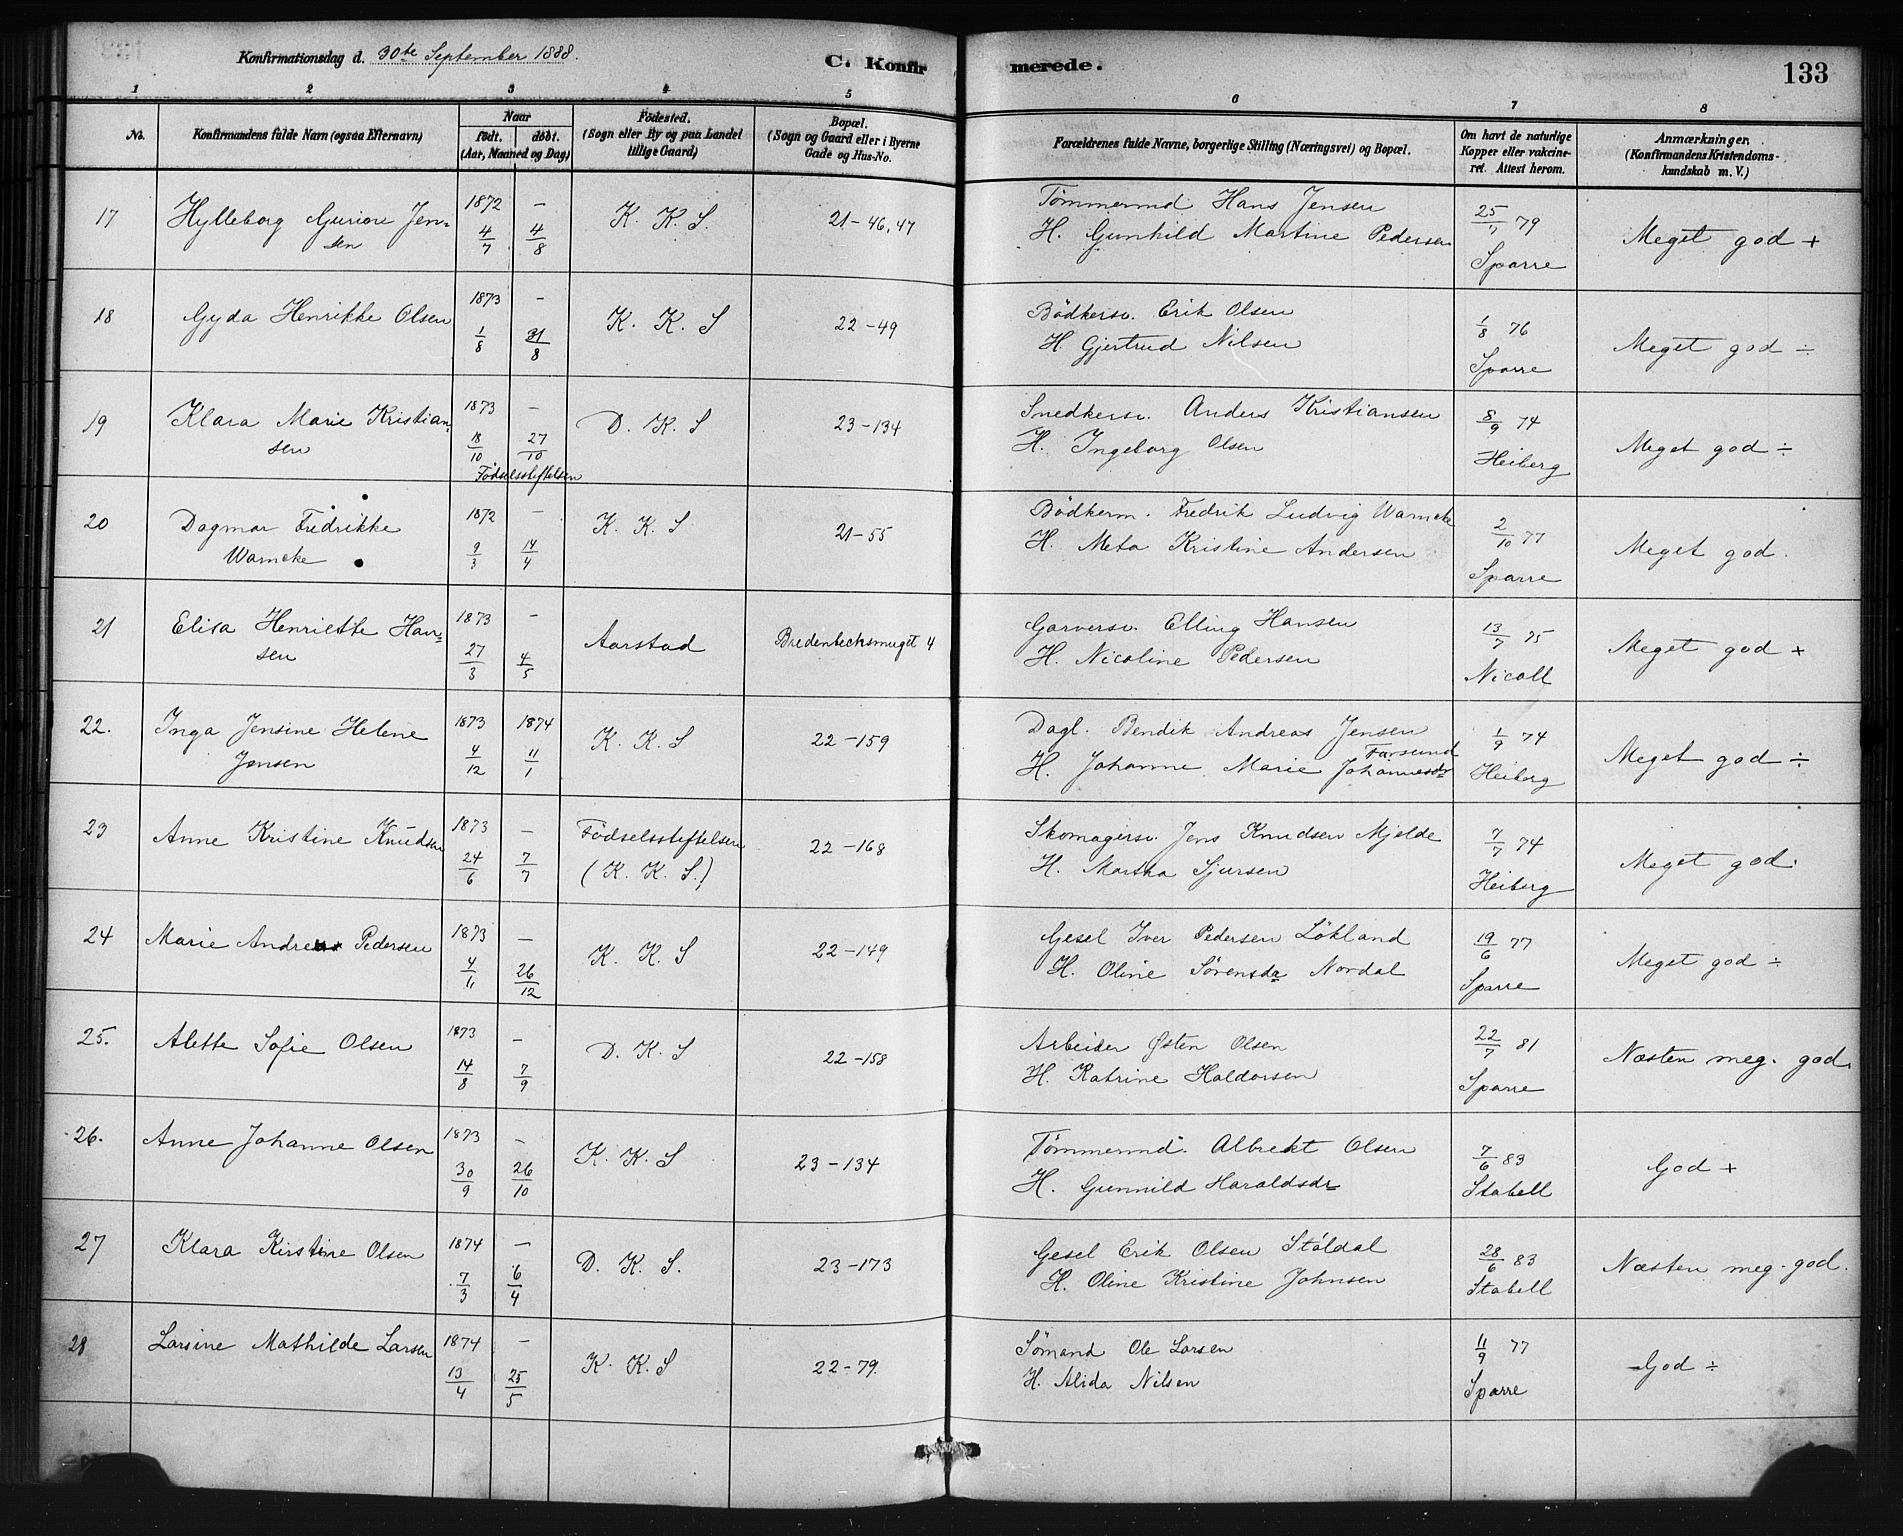 Konfirmationsdag d. 30te September 1888.
C. Konfirmerede.
133
1 2 3 4 5 6 7 8
No.
Konfirmandens fulde Navn (ogsaa Efternavn)
Naar
født. døbt.
(Aar, Maaned og Dag)
Fødested.
(Sogn eller By og paa Landet
tillige Gaard)
Bopæl.
(Sogn og Gaard eller i Byerne
Gade og Hus-No.
Forældrenes fulde Navne, borgerlige Stilling (Næringsvei) og Bopæl.
Om havt de naturlige
Kopper eller vakcine-
ret. Attest herom.
Anmærkninger.
(Konfirmandens Kristendoms-
kundskab m. V.)
17 Hylleborg Guriore Jen-
sen
1872 4/7 – 4/8
K. K. S.
21-46,47
Tømmermd Hans Jensen
H. Gunhild Martine Pedersen
25/7 79
Sparre
Meget god +
18 Gyda Henrikke Olsen
1873 1/8 – 31/8
K. K. S
22-49
Bødkersv. Erik Olsen
H. Gjertrud Nilsen
1/8 76
Sparre
Meget god ÷
19 Klara Marie Kristian-
sen
1873 18/10 – 27/10
Fødselsstiftelsen
D. K. S
23-134
Snedkersv. Anders Kristiansen
H. Ingeborg Olsen
8/9 74
Heiberg
Meget god ÷
20 Dagmar Fredrikke
Warncke
1872 9/3 – 14/4
K. K. S
21-55
Bødkerm. Fredrik Ludvig Warncke
H. Meta Kristine Andersen
2/10 77
Sparre
Meget god.
21 Elisa Henriette Han-
sen
1873 27/3 – 4/5
Aarstad
Bredenbecksmuget 4
Garversv. Elling Hansen
H. Nicoline Pedersen
13/7 75
Nicoll
Meget god +
22. Inga Jensine Helene
Jensen
1873 4/12 1874 11/1
K. K. S
22-159
Dagl. Bendik Andreas Jensen
Farsund
H. Johanne Marie Johannesdr
1/9 74
Heiberg
Meget god ÷
23 Anne Kristine Knudsen
1873 24/6 – 7/7
Fødselsstiftelsen
(K. K. S.)
22-168
Skomagersv. Jens Knudsen Mjelde
H. Martha Sjursen
7/7 74
Heiberg
Meget god.
24 Marie Andrea Pedersen
1873 4/11 – 26/12
K. K. S
22-149
Gesel Iver Pedersen Løkland
H. Oline Sørensdr Nordal
19/6 77
Sparre
Meget god ÷
25. Alette Sofie Olsen
1873 14/8 – 7/9
D. K. S
22-158
Arbeider Østen Olsen
H. Katrine Haldorsen
22/7 81
Sparre
Næsten meg. god.
26. Anne Johanne Olsen
1873 30/9 – 26/10
K. K. S
23-134
Tømmermd. Albrekt Olsen
H. Gunnild Haraldsdr
7/6 83
Stabell
God +
27 Klara Kirstine Olsen
1874 7/3 – 6/4
D. K. S.
23-173
Gesel Erik Olsen Støldal
H. Oline Kristine Johnsen
28/6 83
Stabell
Næsten meg. god.
28 Larsine Mathilde Larsen
1874 13/4 – 25/5
K. K. S
22-79.
Sømand Ole Larsen
H. Alida Nilsen
11/9 77
Sparre
God ÷